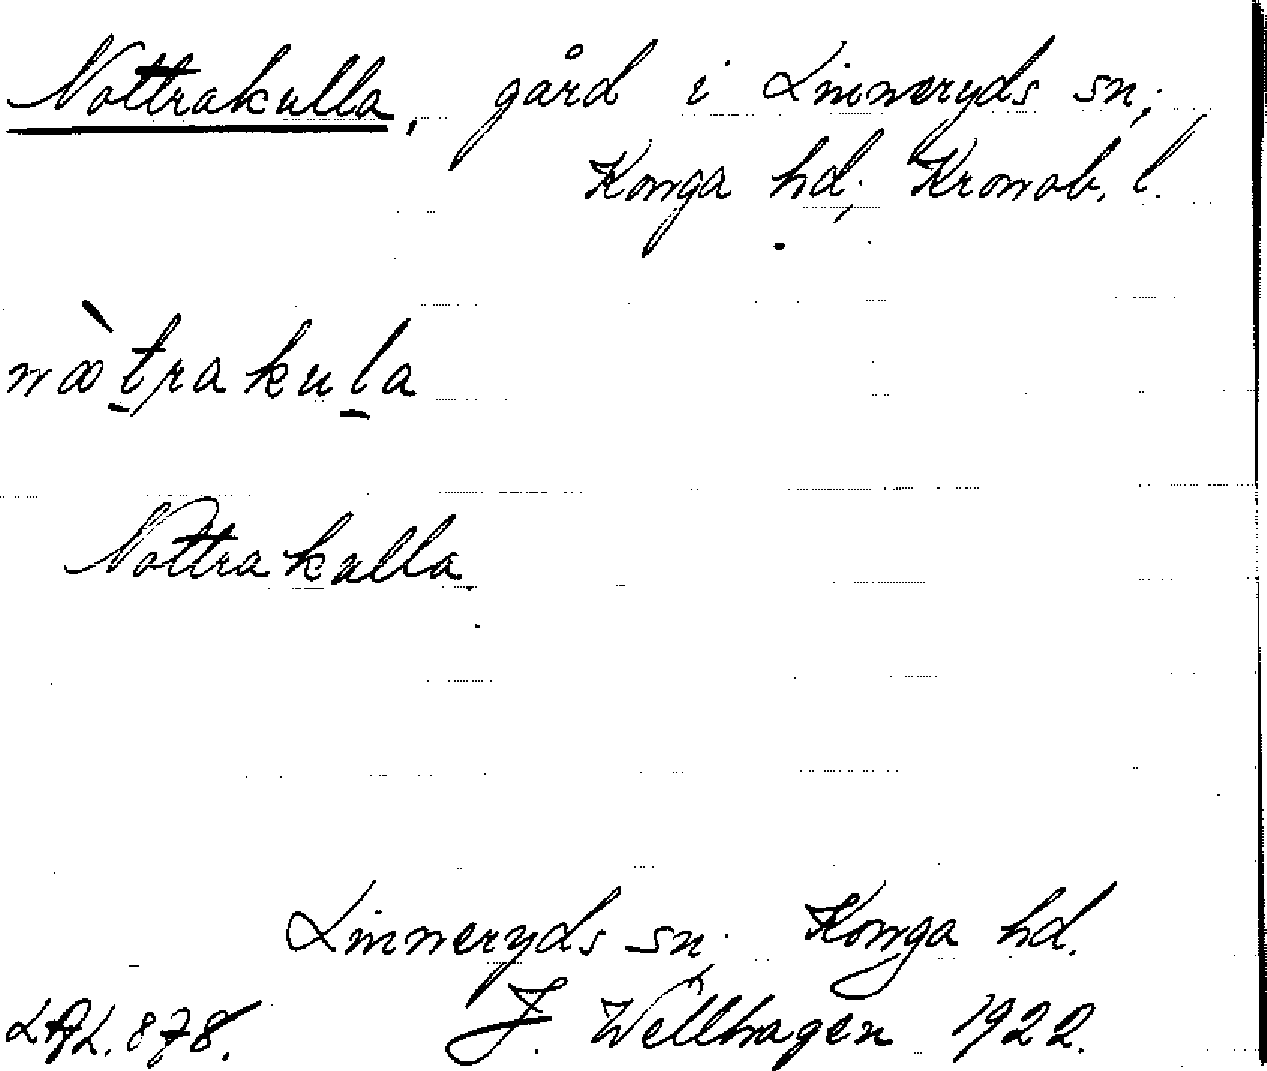 Nottrakulla, gård i Linneryds sn,
Konga hd, Kronob. l.
nœ̀t̠rakul̠a
Nottrakulla.
Linneryds sn. Konga hd.
J. Wellhagen 1922.